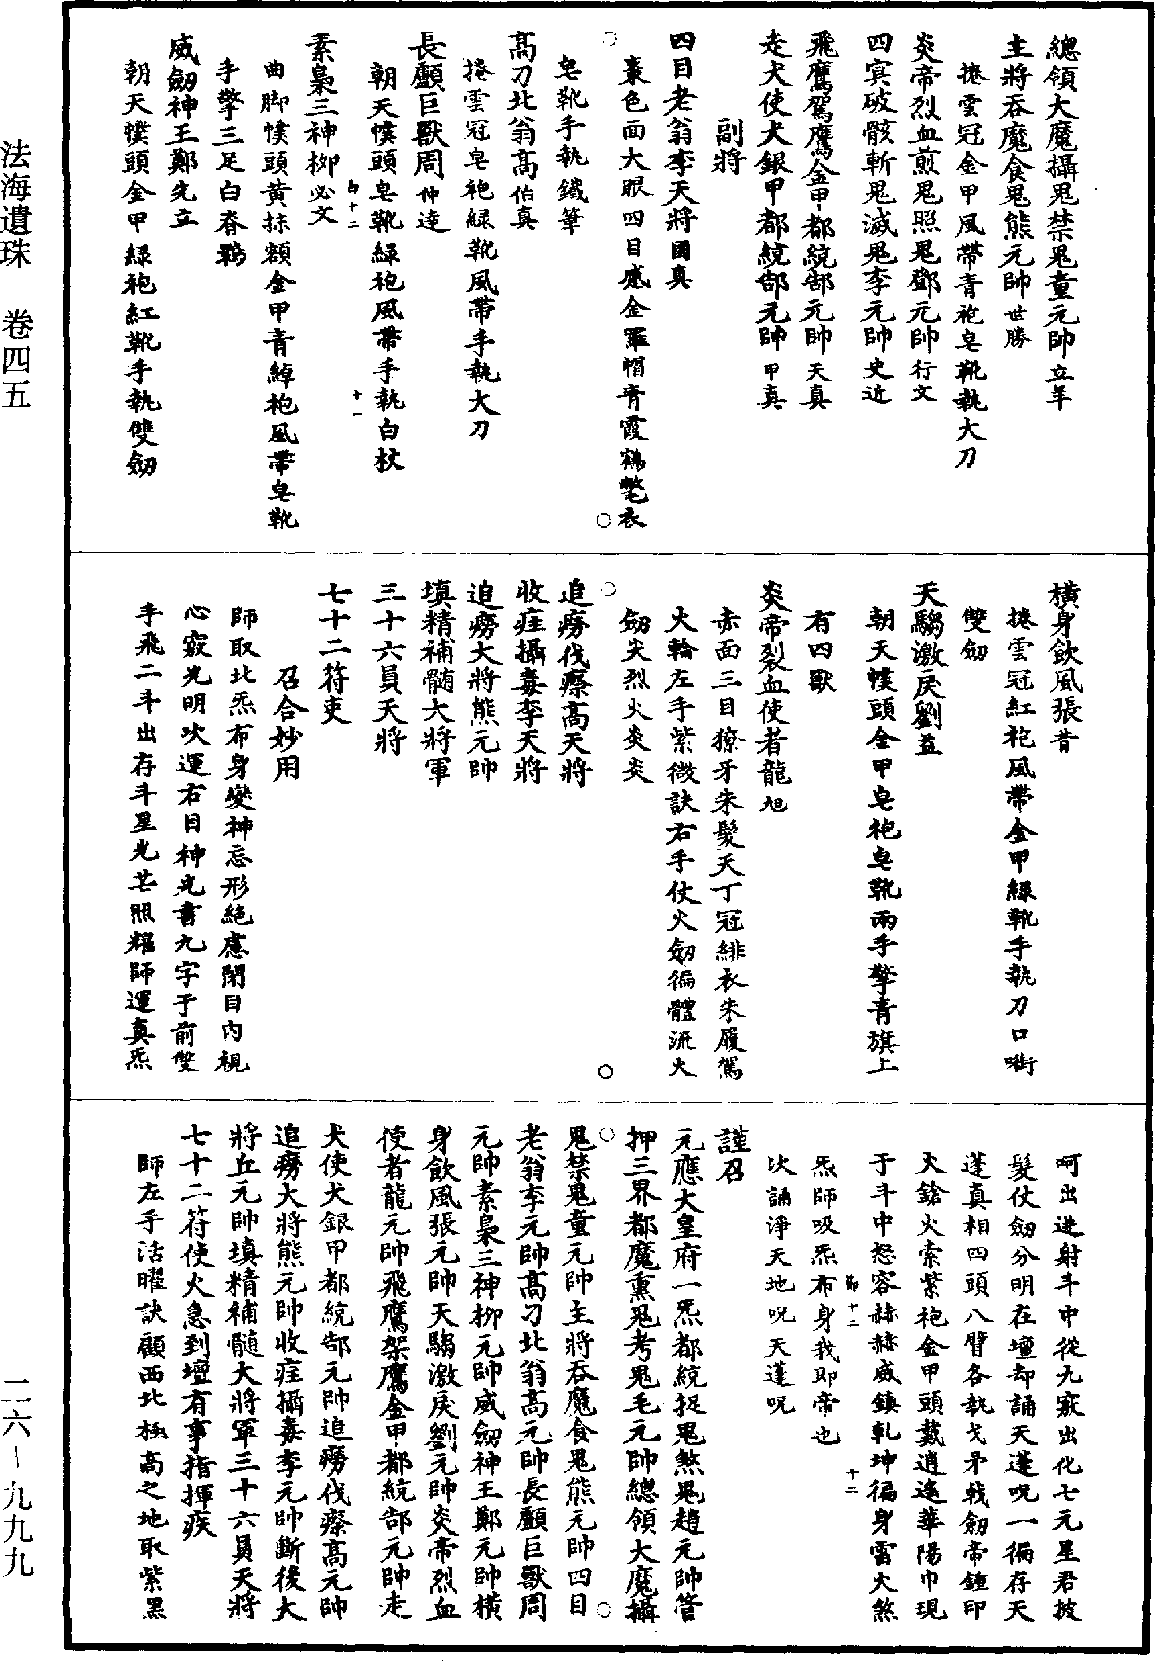 總領大魔攝鬼禁鬼童元帥立年
主將吞魔食鬼熊元帥世勝
捲雲冠金甲風帶青袍皂靴執大刀
炎帝烈血煎鬼照鬼鄧元帥行文
四冥破骸斬鬼滅鬼李元帥史近
飛鷹駕鷹金甲都統郜元帥天真
走犬使犬銀甲都統郜元帥甲真
副將
四目老翁李天將國真
棗色面大眼四目感金羅帽青霞鶴氅衣
皂靴手執鐵筆
高刁北翁高伯真
捲雲冠皂袍綠靴風帶手執大刀
長顱巨獸周仲達
朝天幞頭皂靴綠袍風帶手執白杖
十一
素梟三神柳必文
曲脚幞頭黃抹額金甲青綽袍風帶皂靴
手擎三足白脊鵶
威劒神王鄭先立
朝天幞頭金甲綠袍紅靴手執雙劒
橫身飲風張昔
捲雲冠紅袍風帶金甲綠靴手執刀口啣
雙劒
天騶激戾劉益
朝天幞頭金甲皂袍皂靴兩手擎青旗上
有四獸
炎帝裂血使者龍旭
赤面三目獠牙朱髮天丁冠緋衣朱履駕
火輪左手紫微訣右手仗火劒徧體流火
劒尖烈火炎炎
追癆伐瘵高天將
收疰攝毒李天將
追癆大將熊元帥
填精補髓大將軍
三十六員天將
七十二符吏
召合妙用
師取北炁布身變神忘形絕慮閉目內視
心竅光明次運右目神光書九字于前雙
手飛二斗出存斗星光芒照耀師運真炁
呵出迸射斗中從九竅出化七元星君披
髮仗劒分明在壇却誦天蓬呪一徧存天
蓬真相四頭八臂各執戈矛戟劒帝鐘印
火鎗火索紫袍金甲頭戴逍遙華陽巾現
于斗中怒容赫赫威鎮乹坤徧身雷火煞
炁師吸炁布身我即帝也
十二
次誦淨天地呪天蓬呪
謹召
元應大皇府一炁都統捉鬼煞鬼趙元帥管
押三界都魔熏鬼考鬼毛元帥總領大魔攝
鬼禁鬼童元帥主將吞魔食鬼熊元帥四目
老翁李元帥高刁北翁高元帥長顱巨獸周
元帥素梟三神柳元帥威劒神王鄭元帥橫
身飲風張元帥天騶激戾劉元帥炎帝烈血
使者龍元帥飛鷹架鷹金甲都統郜元帥走
犬使犬銀甲都統郜元帥追癆伐瘵高元帥
追癆大將熊元帥收疰攝毒李元帥斷後大
將丘元帥填精補髓大將軍三十六員天將
七十二符使火急到壇有事指揮疾
師左手活曜訣顧西北極高之地取紫黑
法海遺珠 卷四五
二六－九九九